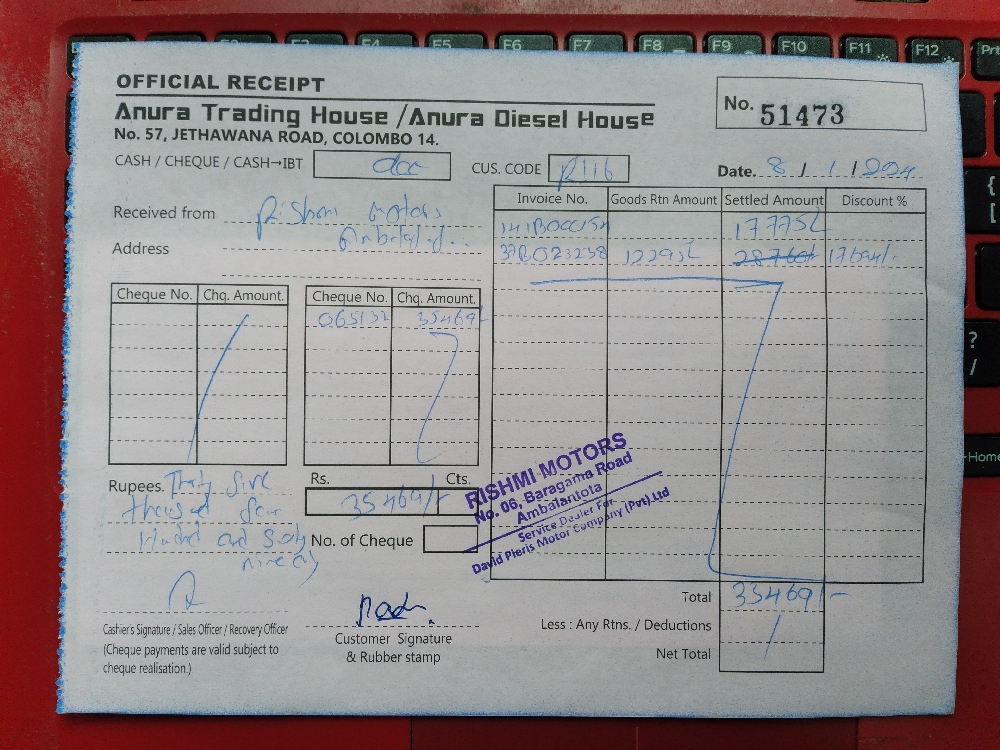 OFFICIAL RECEIPT
Anura Trading House /Anura Diesel House
No. 57, JETHAWANA ROAD, COLOMBO 14.
No. 51473
CASH / CHEQUE / CASH→IBT
CUS. CODE R116
Date. 8 / 1 /
Received from Motors
Address
Invoice No. Goods Rtn Amount Settled Amount Discount %
17775/-
37B023238 12295/- 28760/- 17694/-
Cheque No. Chq. Amount. Cheque No. Chq. Amount.
065132 35469/-
Rupees. Thirty five
thousand four
Hundred and Sixty
nine
Rs. Cts.
35469/-
No. of Cheque
RISHMI MOTORS
No. 06, Baragama Road
Ambalantota
Service Dealer For
David Pieris Motor Company (Pvt) Ltd
Total 35469/-
Less : Any Rtns. / Deductions
Net Total
Cashier's Signature / Sales Officer / Recovery Officer
(Cheque payments are valid subject to
cheque realisation.)
Customer Signature
& Rubber stamp
F4 F5 F6 F7 F8 F9 F10 F11 F12
Home